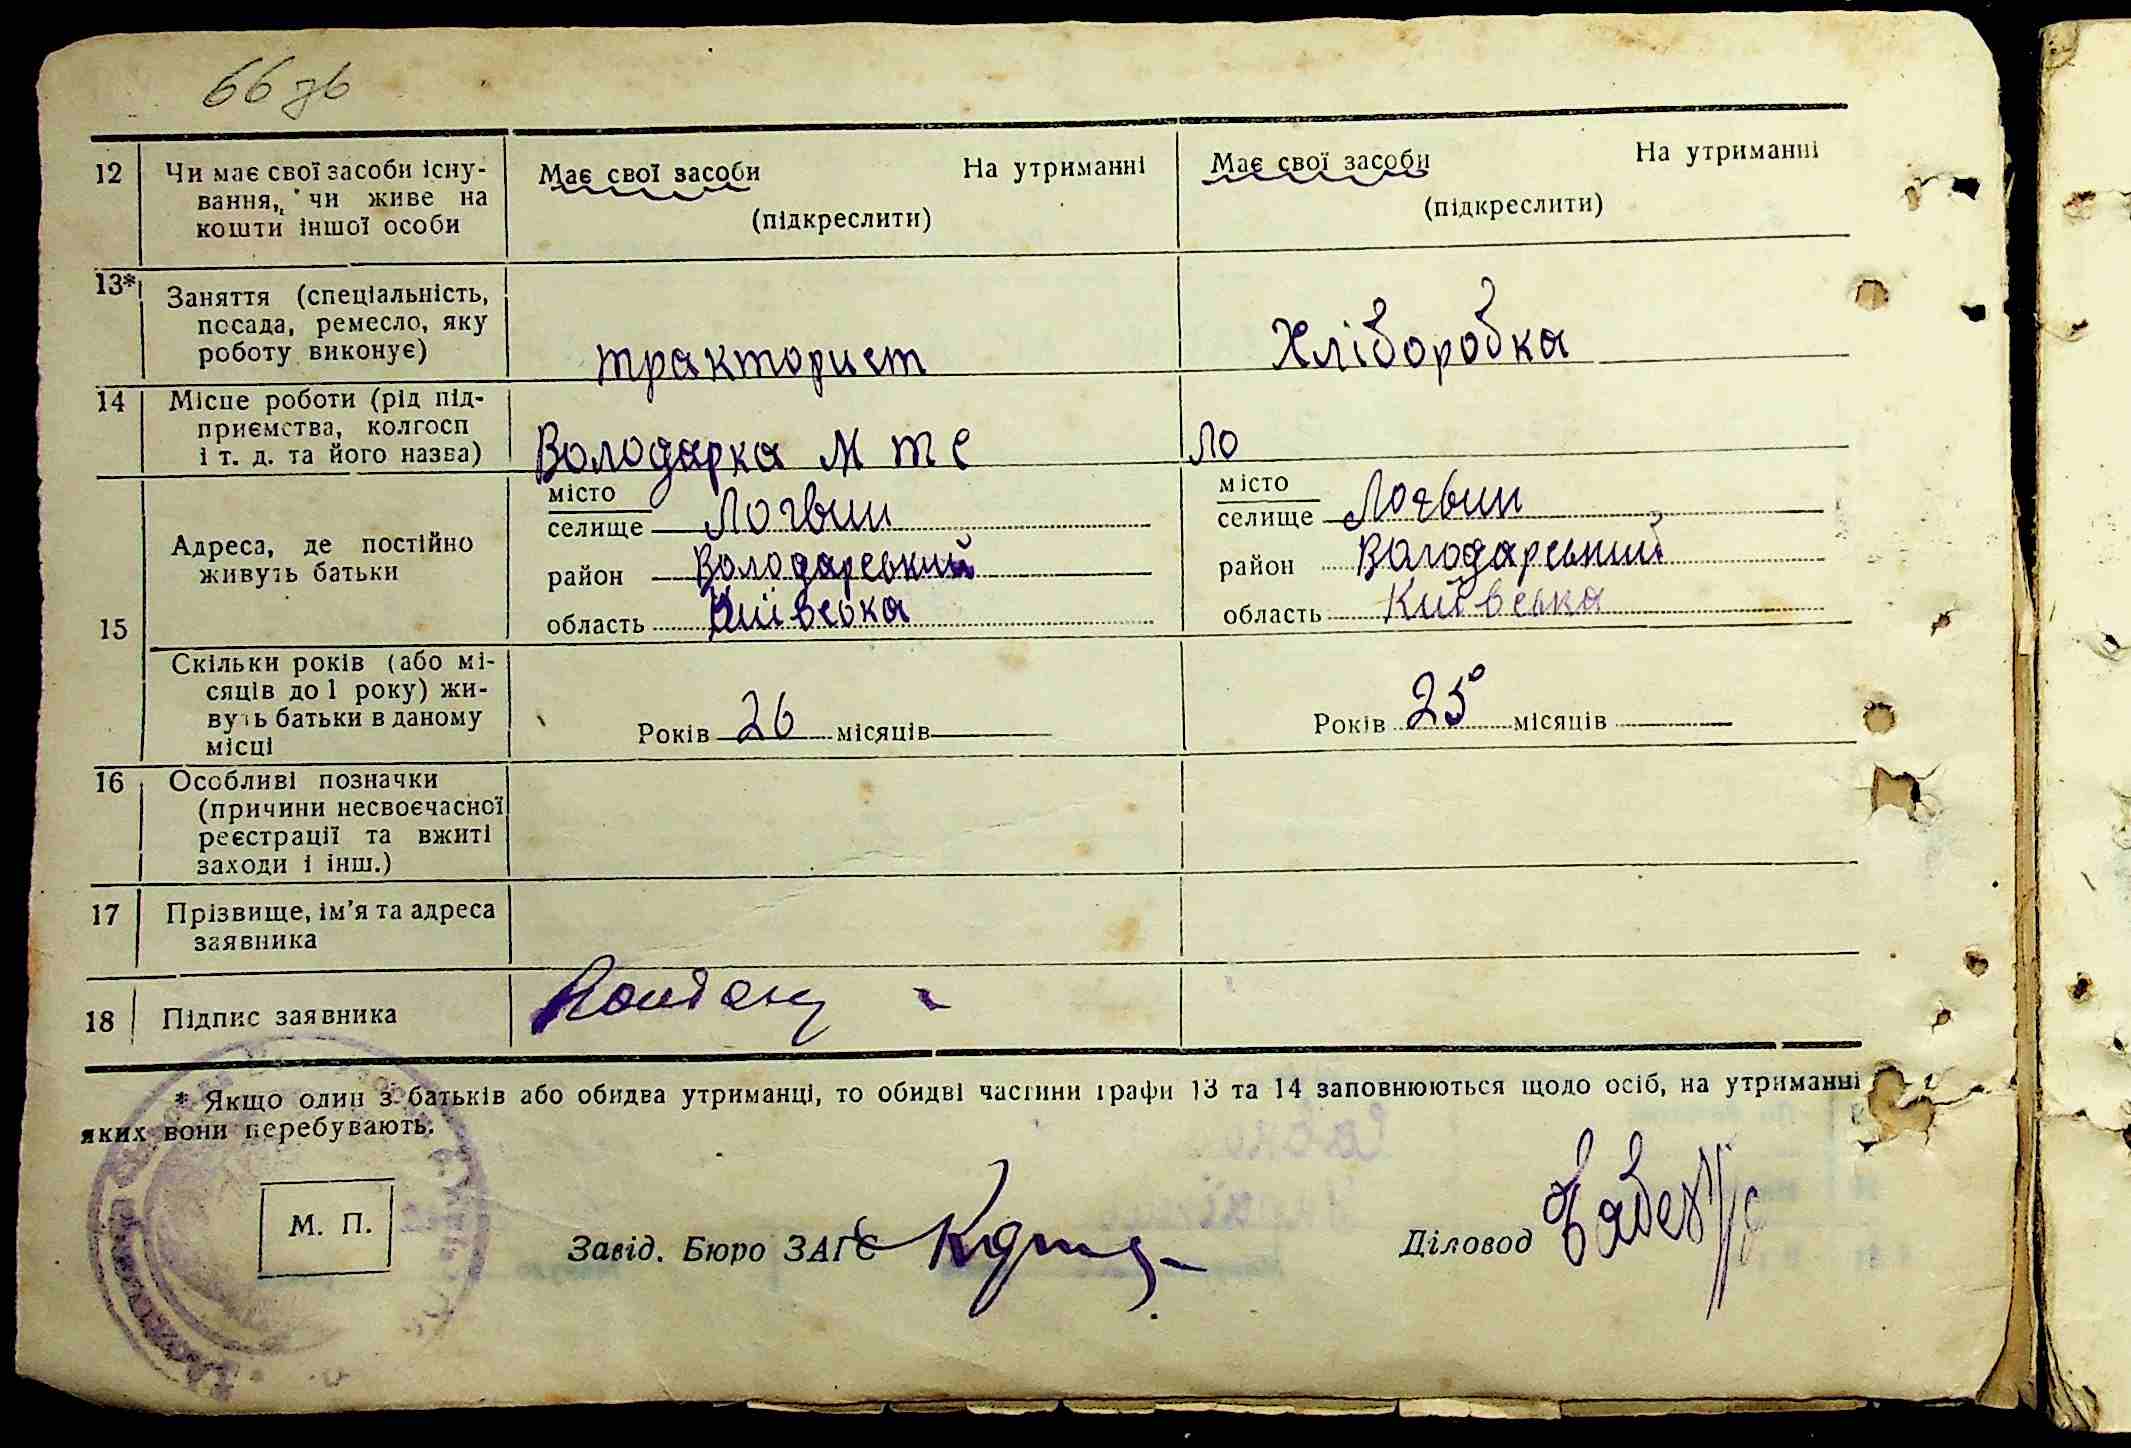 66 зв
12 Чи має свої засоби існу-
вання, чи живе на
кошти іншої особи
Має свої засоби На утриманні
(підкреслити)
Має свої засоби На утриманні
(підкреслити)
13* Заняття (спеціальність,
посада, ремесло, яку
роботу виконує)
тракторист
Хліборобка
14 Місце роботи (рід під-
приємства, колгосп
і т. д. та його назва)
Володарка М т с
ло
15
Адреса, де постійно
живуть батьки
місто
селище Логвин
район Володарський
область Київська
місто
селище Логвин
район Володарський
область Київська
Скільки років (або мі-
сяців до 1 року) жи-
вуть батьки в даному
місці
Років 26 місяців
Років 25 місяців
16 Особливі позначки
(причини несвоєчасної
реєстрації та вжиті
заходи і інш.)
17 Прізвище, ім'я та адреса
заявника
18 Підпис заявника
* Якщо один з батьків або обидва утриманці, то обидві частини графи 13 та 14 заповнюються щодо осіб, на утриманні
яких вони перебувають.
М. П.
Завід. Бюро ЗАГС
Діловод